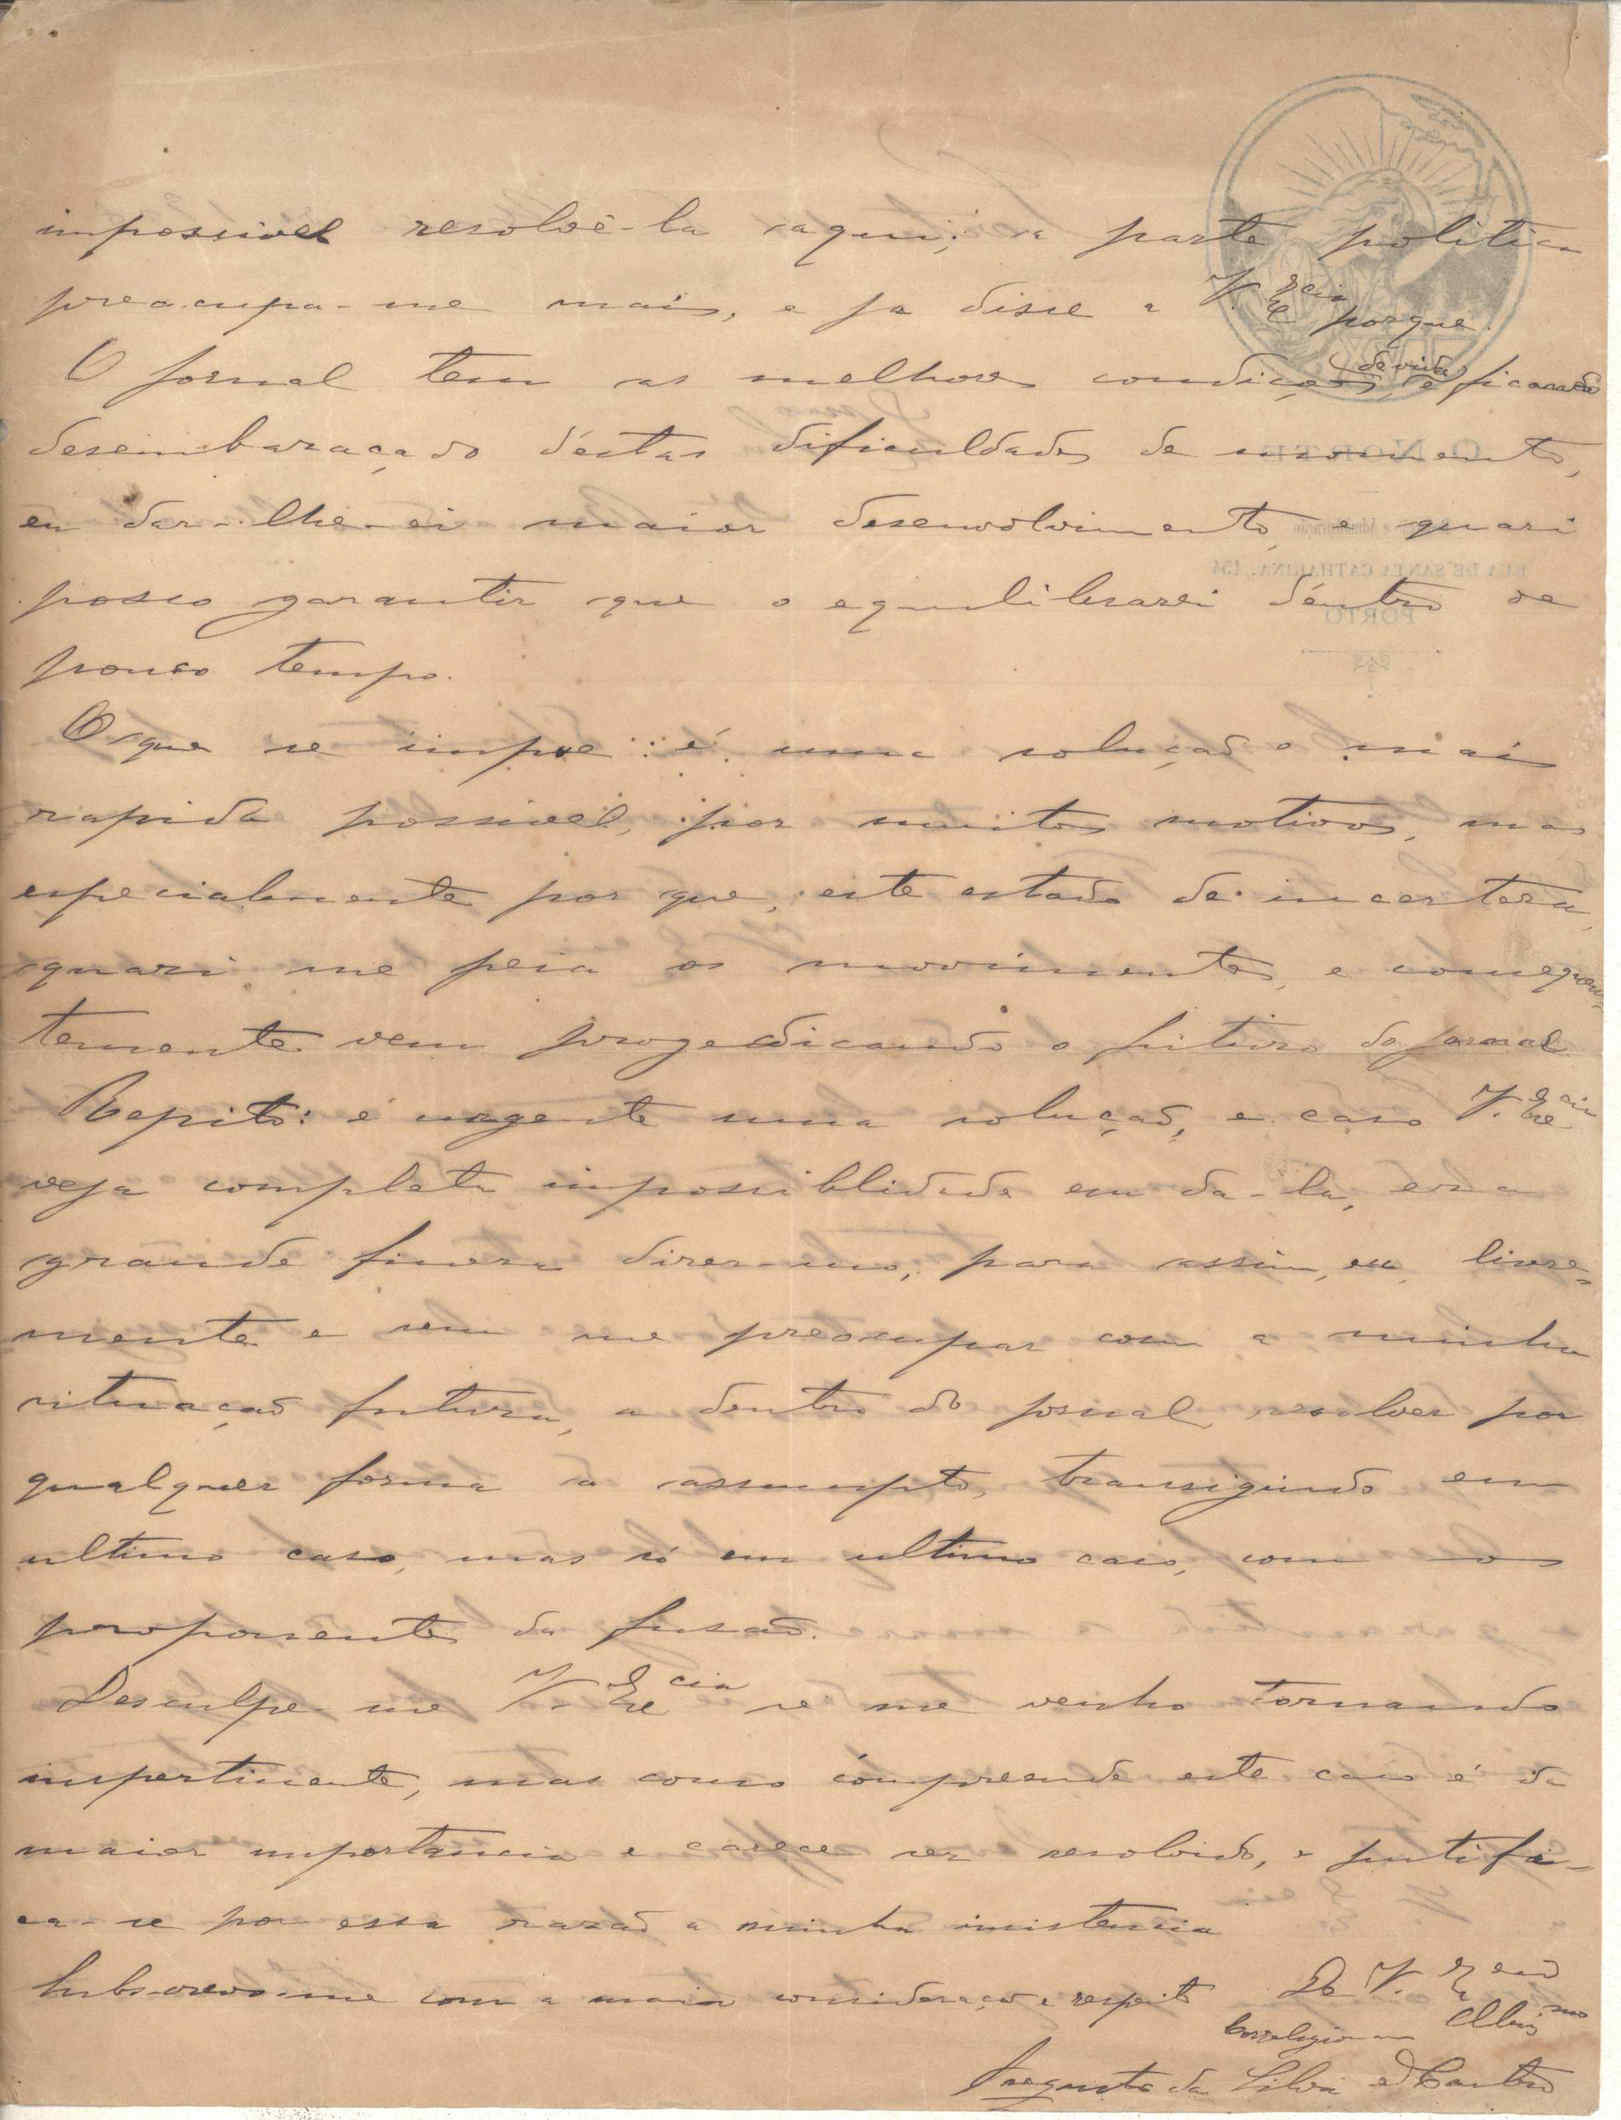 impossivel resolvê-la aqui; a parte politica
preocupa-me mais, e ja disse a V. Ex.cia porque.
O jornal tem as melhores condições de vida, e ficando
desembaraçado déstas dificuldades de momento,
eu dar-lhe-ei maior desenvolvimento, e quasi
posso garantir que o equilibrarei déntro de
pouco tempo.
O que se impoe é uma solução o mais
rapida possivel, por muitos motivos, mas
especialmente por que, este estado de incerteza,
quasi me peia os movimentos, e consequen-
temente vem projedicando o futuro do jornal.
Repito: é urgente uma solução, e caso V. Ex.cia
veja completa impossiblidade em da-la, era
grande fineza dizer-mo, para assim, eu, livre-
mente e sem me preocupar com a minha
situação futura, a dentro do jornal, resolver por
qualquer forma o assumpto, transigindo em
ultimo caso, mas só em ultimo caso, com os
proponentes da fusão.
Desculpe-me V. Ex.cia se me venho tornando
impertinente, mas como compreende este caso é da
maior importancia e carece ser resolvido, e justifi-
ca-se por essa razão a minha insistencia
Subscrevo-me com a maior consideração e respeito De V. Ex.cia
Correligionario
Augusto da Silva e Castro
O NORTE
RUA DE SANTA CATHARINA, 154
PORTO